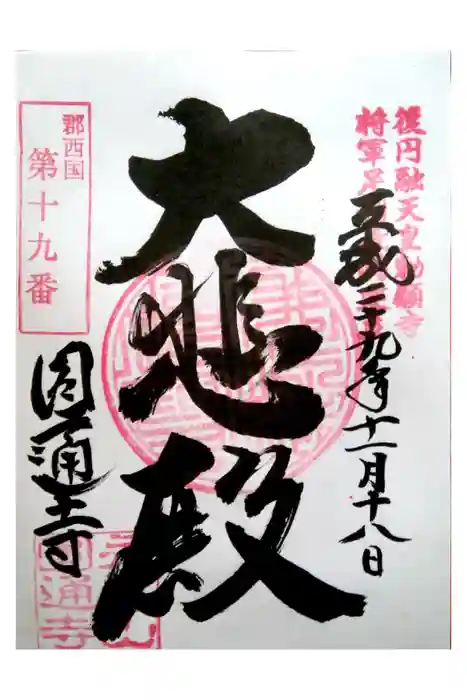 後円融天皇勅願寺
将軍足
平成二十九年十一月十八日
大悲殿
郡西国
第十九番
圓通寺